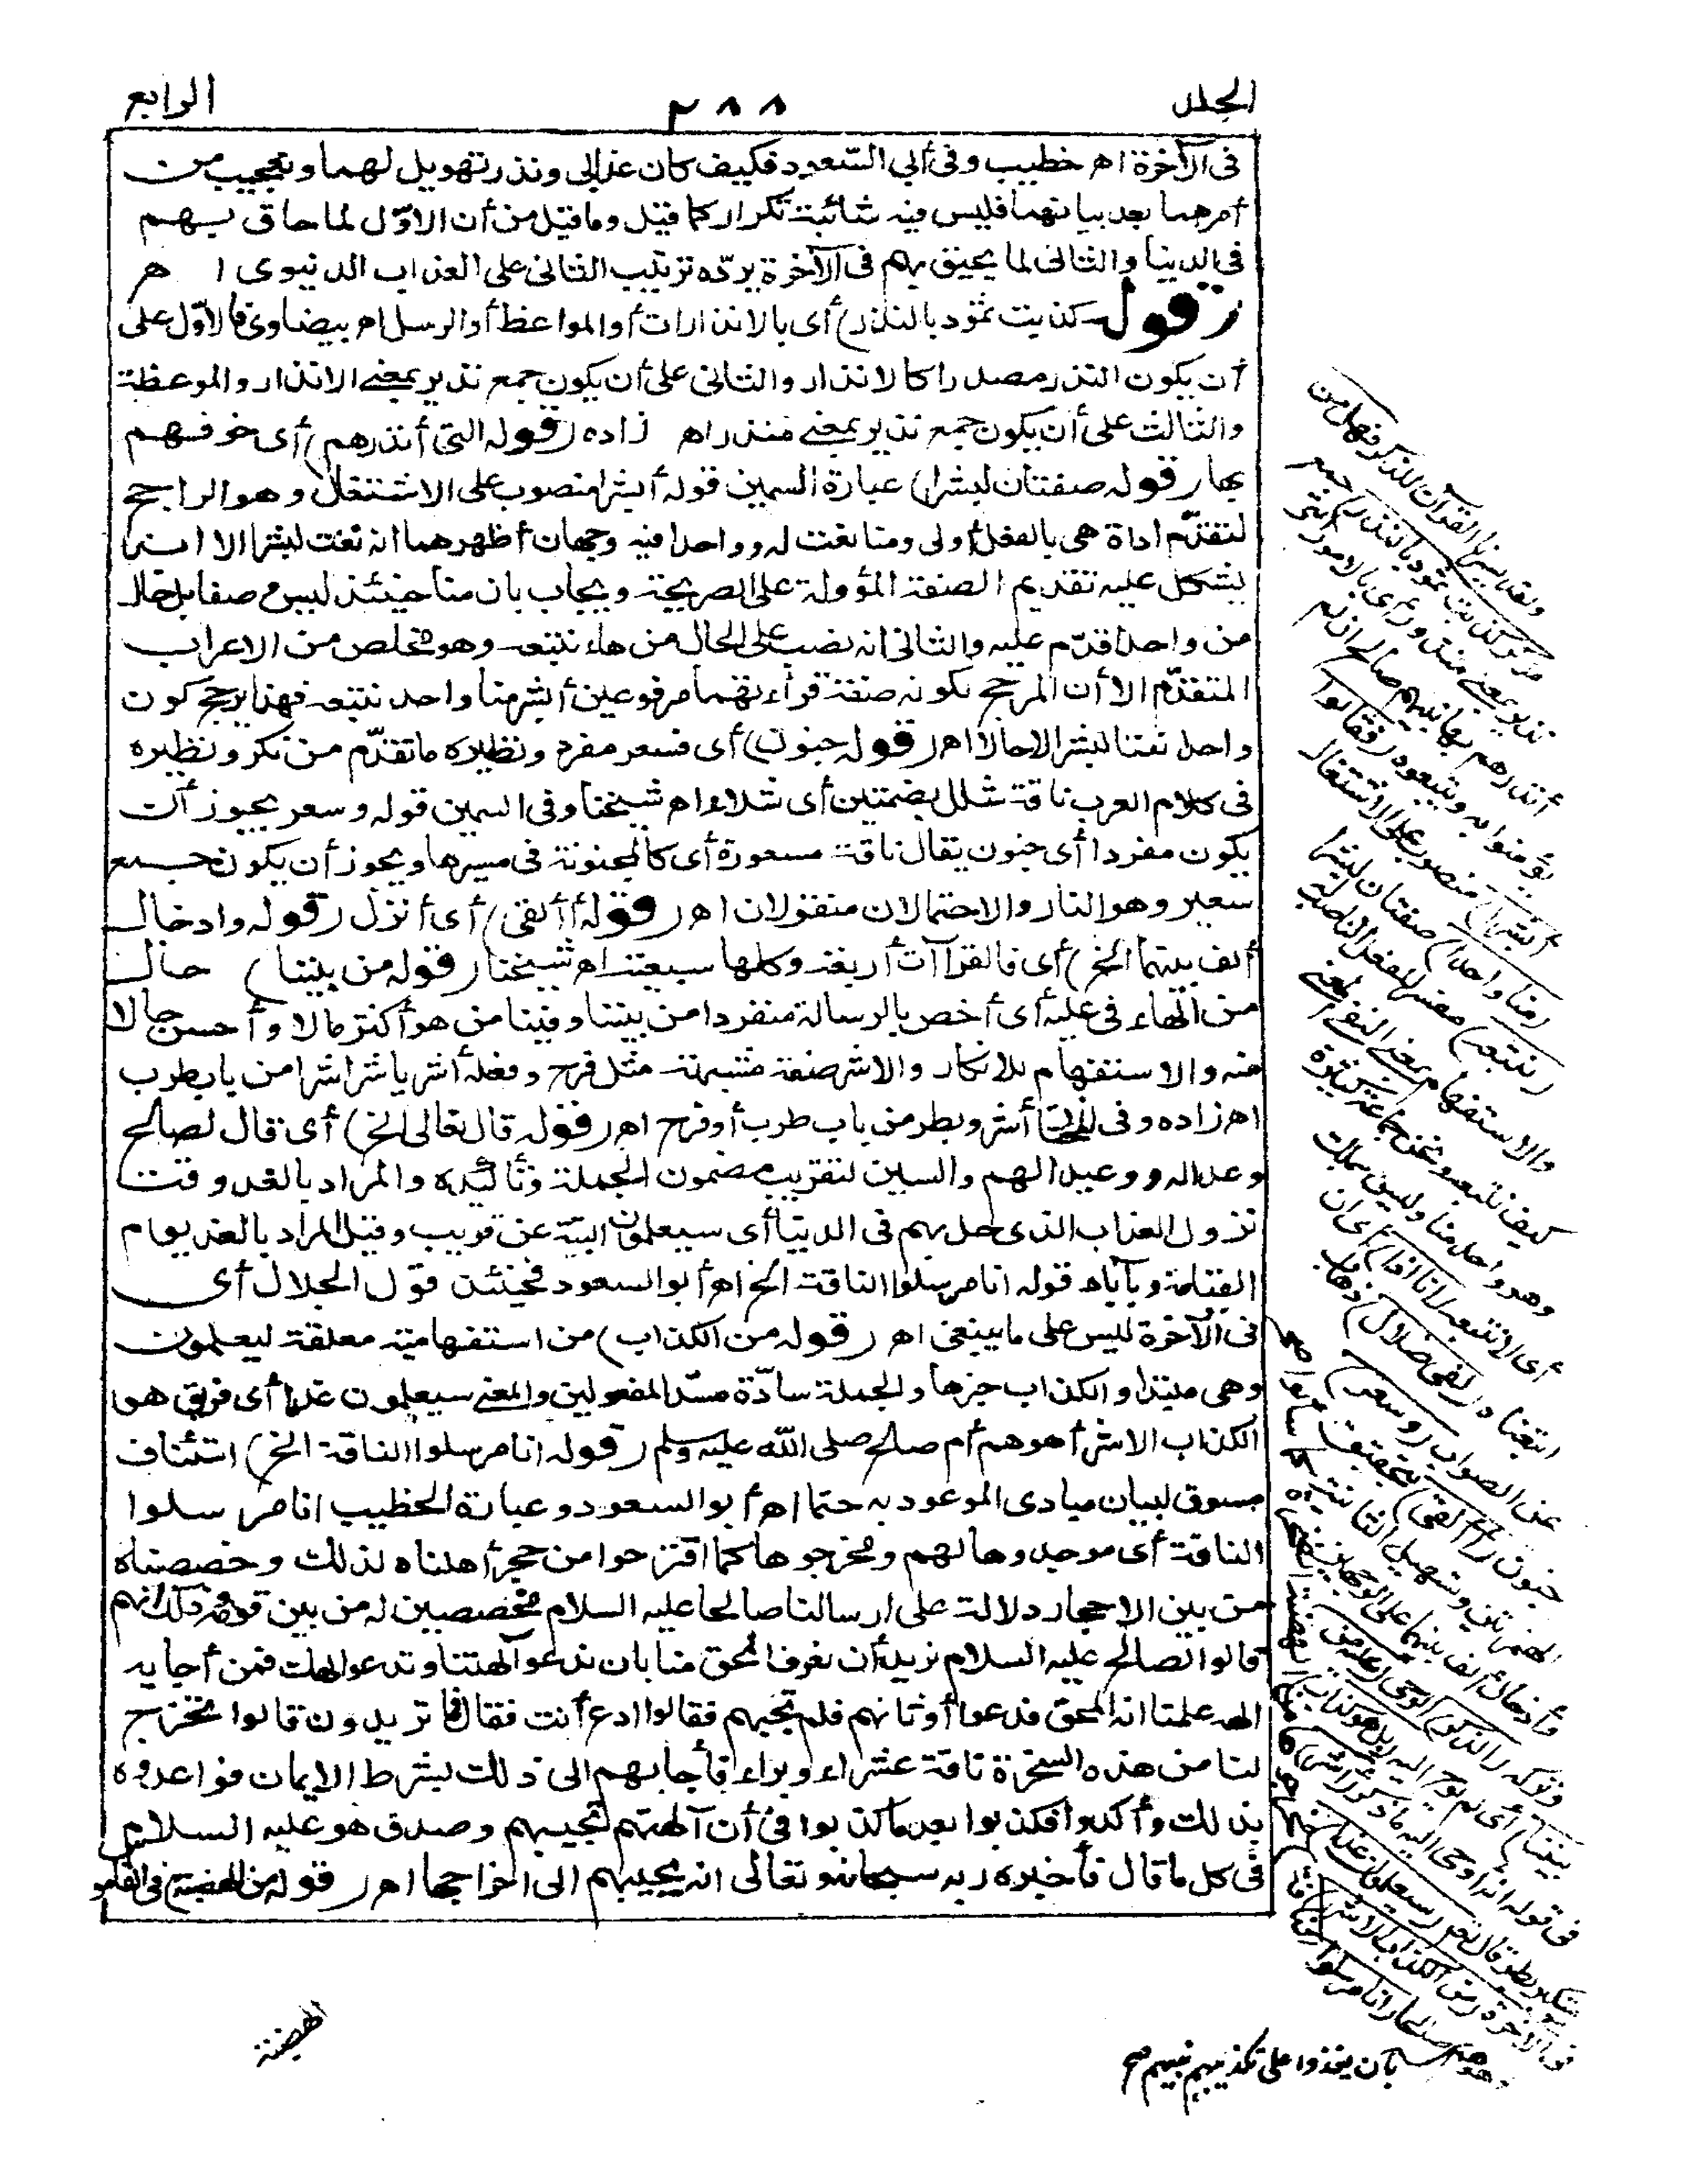 الجلد
٢٨٨
الرابع
في الآخرة اه خطيب وفي أبي السّعود فكيف كان عذابي ونذر تهويل لهما وتعجيب من
أمرهما بعد بيانهما فليس فيه شائبة تكرار كما قيل وما قيل من أن الاوّل لما حاق بهم
في الدنيا والثاني لما يحيق بهم في الآخرة يردّه ترتيب الثاني على العذاب الدنيوي اه
(قوله كذبت ثمود بالنذر) أي بالانذارات أو المواعظ أو الرسل اه بيضاوي فالاوّل على
أن يكون النذر مصدرا كالانذار والثاني على أن يكون جمع نذير بمعنى الانذار والموعظة
والثالث على أن يكون جمع نذير بمعنى منذر اه زاده (قوله التي أنذرهم) أي خوفهم
بها (قوله صفتان لبشرا) عبارة السمين قوله أبشرا منصوب على الاشتغال وهو الراجح
لتقدّم اداة هي بالفعل أولى ومنا نعت له وواحدا فيه وجهان أظهرهما انه نعت لبشرا الا انه
يشكل عليه تقديم الصفة المؤولة على الصريحة ويجاب بان منا حينئذ ليس وصفا بل حال
من واحدا قدّم عليه والثاني انه نصب على الحال من هاء نتبعه وهو مخلص من الاعراب
المتقدّم الا أن المرجح لكونه صفة قراءتهما مرفوعين أبشر منا واحد نتبعه فهذا يرجح كون
واحدا نعتا لبشرا لا حالا اه (قوله جنون) أي فسعر مفرد ونظيره ما تقدّم من نكر ونظيره
في كلام العرب ناقة شلل بضمتين أي شلاء اه شيخنا وفي السمين قوله وسعر يجوز أن
يكون مفردا أي جنون يقال ناقة مسعورة أي كالمجنونة في سيرها ويجوز أن يكون جمع
سعير وهو النار والاحتمالان منقولان اه (قوله أألقي) أي أأنزل (قوله وادخال
ألف بينهما الخ) أي فالقرآآت أربعة وكلها سبعية اه شيخنا (قوله من بيننا) حال
من الهاء في عليه أي أخص بالرسالة منفردا من بيننا وفينا من هو أكثر مالا وأحسن حالا
منه والاستفهام للانكار والاشر صفة مشبهة مثل فرح وفعله أشر يأشر اشرا من باب طرب
اه زاده وفي المختار أشر وبطر من باب طرب أو فرح اه (قوله قال تعالى الخ) أي قال لصالح
وعدا له ووعيدا لهم والسين لتقريب مضمون الجملة وتأكيده والمراد بالغد وقت
نزول العذاب الذي حل بهم في الدنيا أي سيعلمون البتة عن قريب وقيل المراد بالغد يوم
القيامة ويأباه قوله انا مرسلوا الناقة الخ اه أبو السعود فحينئذ قول الجلال أي
في الآخرة ليس على ما ينبغي اه (قوله من الكذاب) من استفهامية معلقة ليعلمون
وهي مبتدا والكذاب خبرها والجملة سادّة مسدّ المفعولين والمعنى سيعلمون غدا أي فريق هو
الكذاب الاشر أهو هم أم صالح صلى الله عليه وسلم (قوله انا مرسلوا الناقة الخ) استئناف
مسوق لبيان مبادي الموعود به حتما اه أبو السعود وعبارة الخطيب انا مرسلوا
الناقة أي موجدوها لهم ومخرجوها كما اقترحوا من حجر أهلناه لذلك وخصصناه
من بين الاحجار دلالة على ارسالنا صالحا عليه السلام مخصصين له من بين قومه وذلك انهم
قالوا لصالح عليه السلام نريد أن نعرف المحق منا بان ندعو آلهتنا وتدعو الهك فمن أجابه
الهه علمنا انه المحق فدعوا أوثانهم فلم تجبهم فقالوا ادع أنت فقال فما تريدون قالوا تخرج
لنا من هذه الصخرة ناقة عشراء وبراء فأجابهم الى ذلك بشرط الايمان فواعدوه
بذلك وأكدوا فكذبوا بعد ما كذبوا في أن آلهتهم تجيبهم وصدق هو عليه السلام
في كل ما قال فأخبره ربه سبحانه وتعالى انه يجيبهم الى اخراجها اه (قوله من الهضبة) في القاموس
ولقد يسرنا القرآن للذكر فهل من
مدكر كذبت ثمود بالنذر) جمع
نذير بمعنى منذر أي بالامور التي
أنذرهم بها نبيهم صالح ان لم
يؤمنوا به ويتبعوه (فقالوا
أبشرا) منصوب على الاشتغال
(منا واحدا) صفتان لبشرا
(نتبعه) مفسر للفعل الناصب له
والاستفهام بمعنى النفي المعنى
كيف نتبعه ونحن جماعة كثيرة
وهو واحد منا وليس بملك
أي لا نتبعه (انا اذا) أي ان
اتبعناه (لفي ضلال) ذهاب
عن الصواب (وسعر)
جنون (أألقي) بتحقيق
الهمزتين وتسهيل الثانية
وادخال ألف بينهما على الوجهين
وتركه (الذكر) الوحي (عليه من
بيننا) أي لم يوح اليه (بل هو كذاب)
في قوله انه أوحي اليه ما ذكر (أشر)
متكبر بطر قال تعالى (سيعلمون غدا)
في الآخرة (من الكذاب الاشر)
وهو هم
بأن يعذبوا على تكذيبهم نبيهم صح
الهضبة